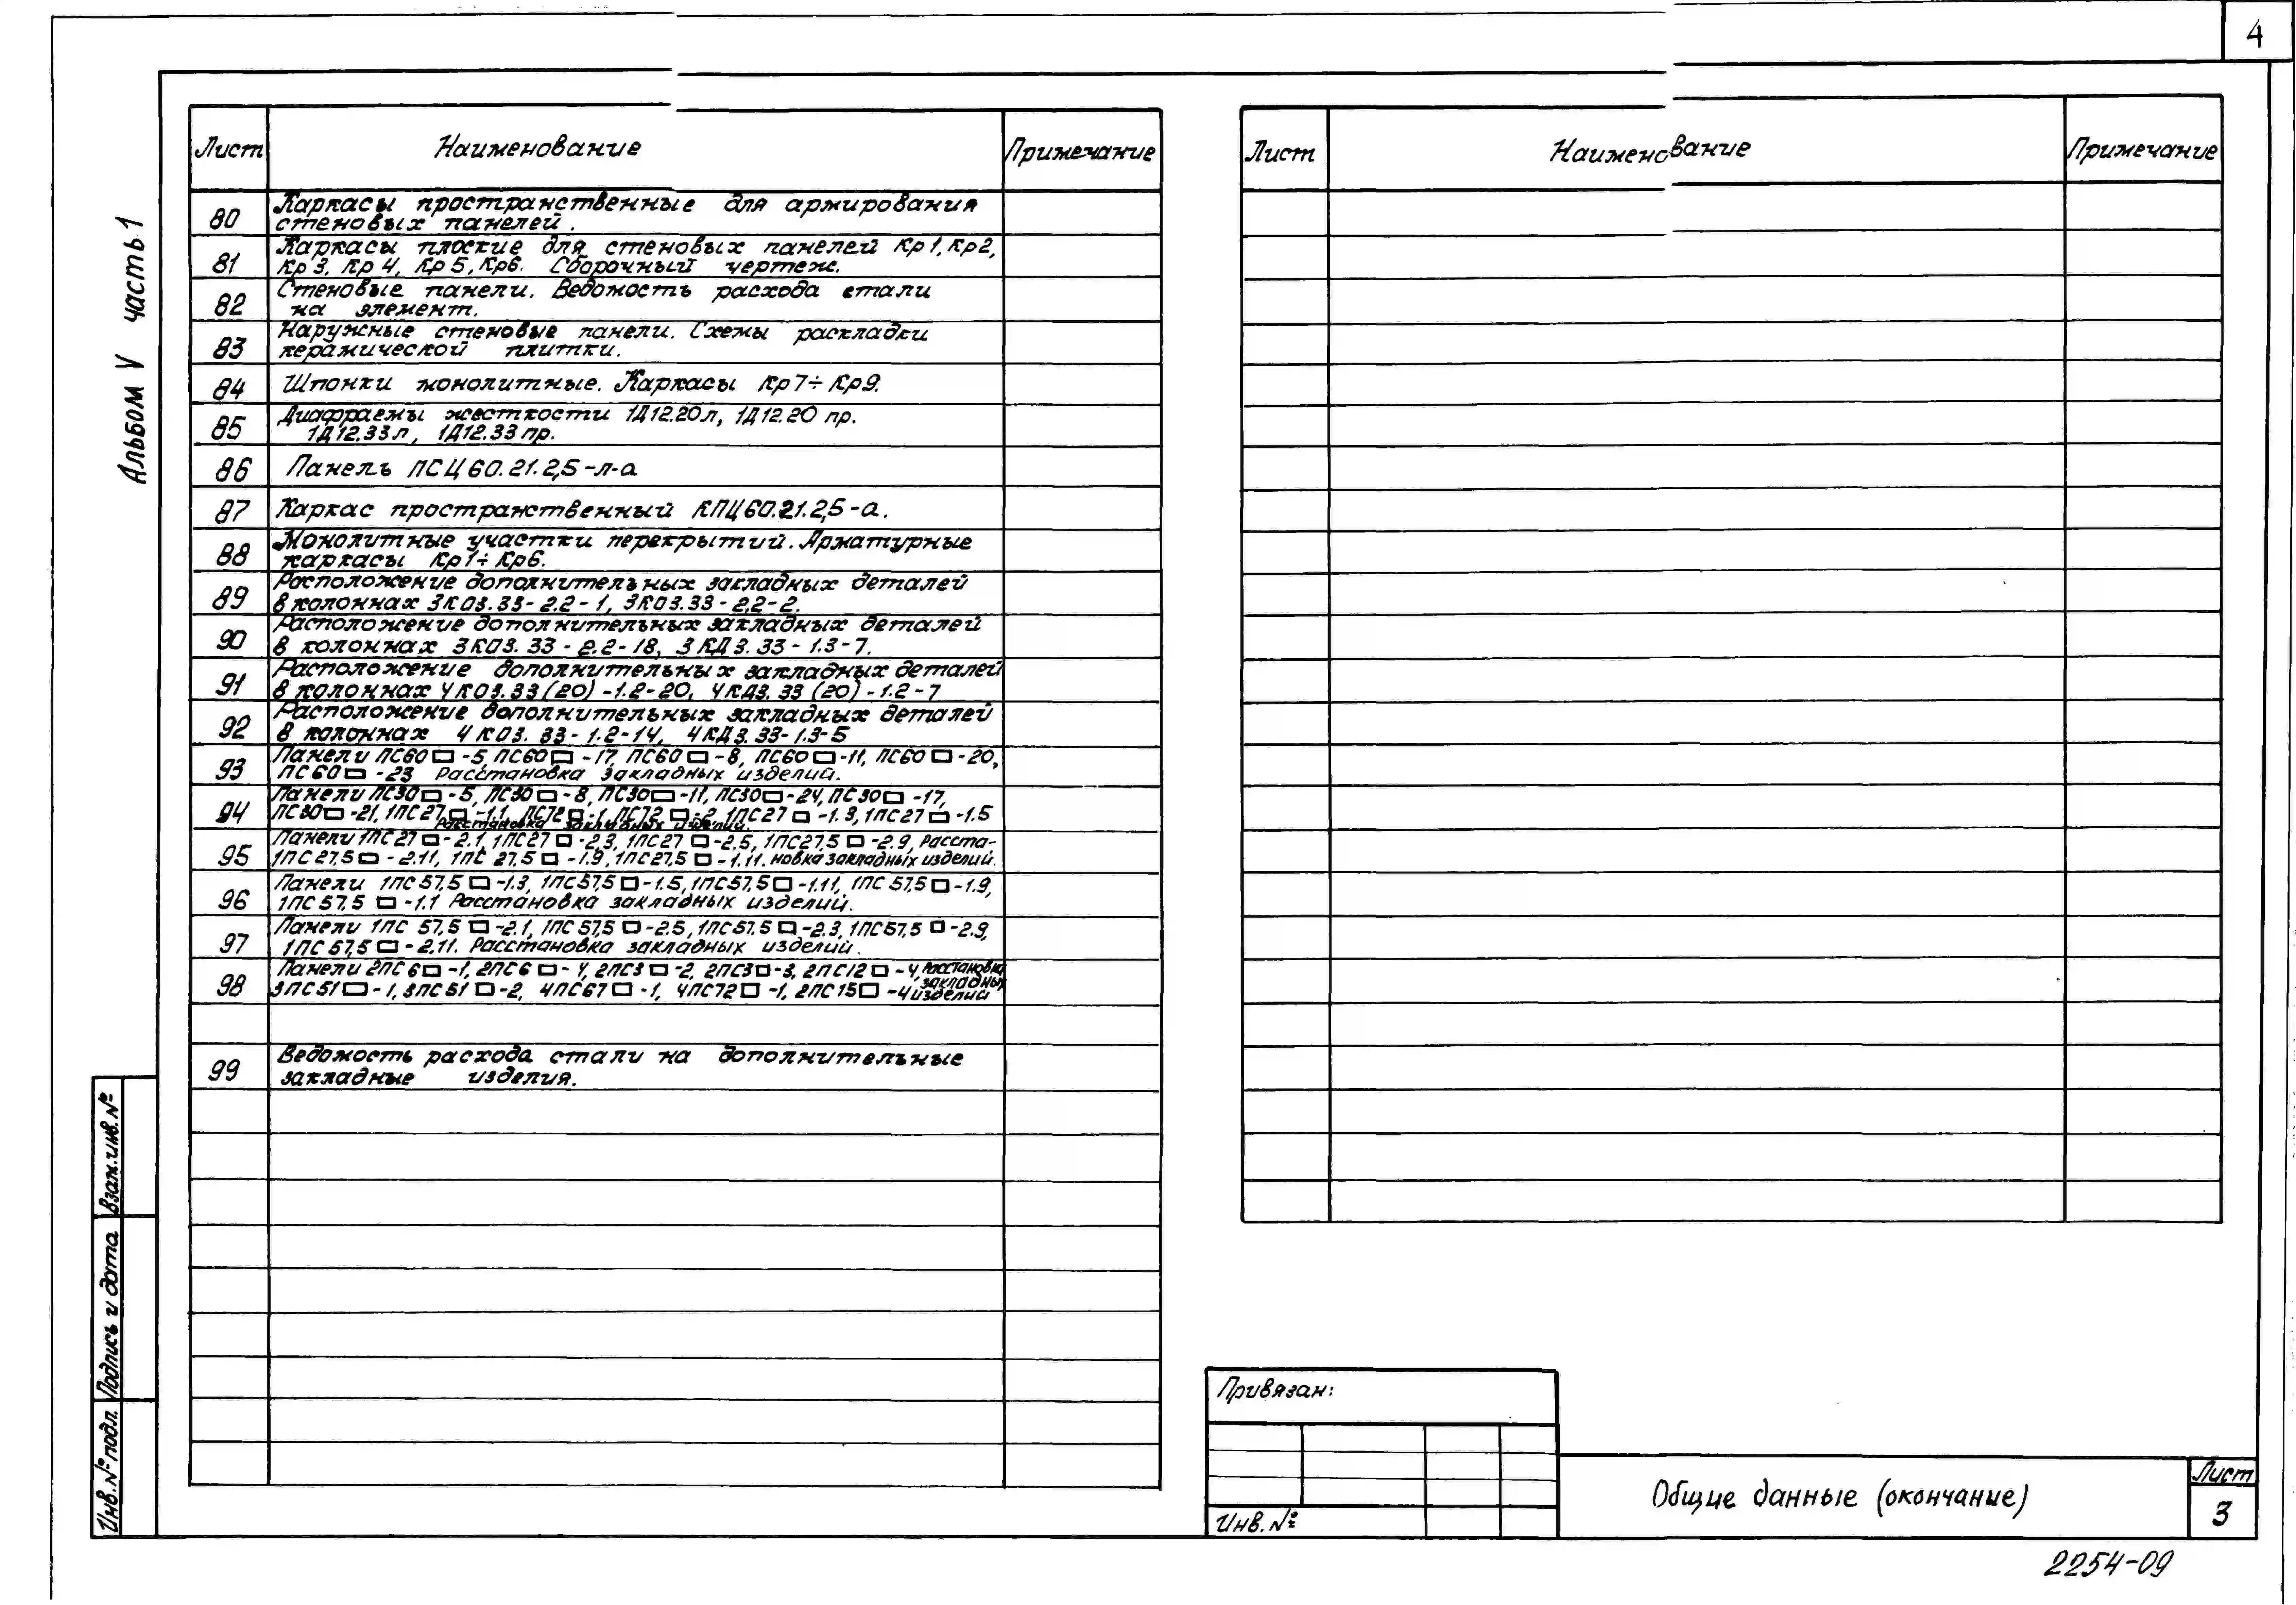 4
Альбом V часть 1
Лист Наименование Примечание
80 Каркасы пространственные для армирования
стеновых панелей.
81 Каркасы плоские для стеновых панелей Кр1, Кр2,
Кр3, Кр4, Кр5, Кр6. Сборочный чертеж.
82 Стеновые панели. Ведомость расхода стали
на элемент.
83 Наружные стеновые панели. Схемы раскладки
керамической плитки.
84 Шпонки монолитные. Каркасы Кр7÷Кр9.
85 Диафрагмы жесткости 1Д12.20л, 1Д12.20 пр.
1Д12.33л, 1Д12.33пр.
86 Панель ПСЦ60.21.2,5-л-а
87 Каркас пространственный КПЦ60.21.2,5-а.
88 Монолитные участки перекрытий. Арматурные
каркасы Кр1÷Кр6.
89 Расположение дополнительных закладных деталей
в колоннах 3КО3.33-2.2-1, 3КО3.33-2.2-2.
90 Расположение дополнительных закладных деталей
в колоннах 3КО3.33-2.2-18, 3КД3.33-1.3-7.
91 Расположение дополнительных закладных деталей
в колоннах 4КО3.33(20)-1.2-20, 4КД3.33(20)-1.2-7
92 Расположение дополнительных закладных деталей
в колоннах 4КО3.33-1.2-14, 4КД3.33-1.3-5
93 Панели ПС60□-5, ПС60□-17, ПС60□-8, ПС60□-11, ПС60□-20,
ПС60□-23 Расстановка закладных изделий.
94 Панели ПС30□-5, ПС30□-8, ПС30□-11, ПС30□-24, ПС30□-17,
ПС30□-21, 1ПС27□-1.1, ПС72□-1, ПС72□-2, 1ПС27□-1.3, 1ПС27□-1.5
Расстановка закладных изделий.
95 Панели 1ПС27□-2.1, 1ПС27□-2.3, 1ПС27□-2.5, 1ПС27,5□-2.9, Расста-
1ПС27,5□-2.11, 1ПС27,5□-1.9, 1ПС27,5□-1.11. новка закладных изделий.
96 Панели 1ПС57,5□-1.3, 1ПС57,5□-1.5, 1ПС57,5□-1.11, 1ПС57,5□-1.9,
1ПС57,5□-1.1 Расстановка закладных изделий.
97 Панели 1ПС57,5□-2.1, 1ПС57,5□-2.5, 1ПС57,5□-2.3, 1ПС57,5□-2.9,
1ПС57,5□-2.11. Расстановка закладных изделий.
98 Панели 2ПС6□-1, 2ПС6□-4, 2ПС3□-2, 2ПС3□-3, 2ПС12□-4, Расстановка
закладных
3ПС51□-1, 3ПС51□-2, 4ПС67□-1, 4ПС72□-1, 2ПС15□-4 изделий
99 Ведомость расхода стали на дополнительные
закладные изделия.
Лист Наименование Примечание
Взам. инв. №
Подпись и дата
Инв. № подл.
Привязан:
Инв. №
Общие данные (окончание)
Лист
3
2254-09